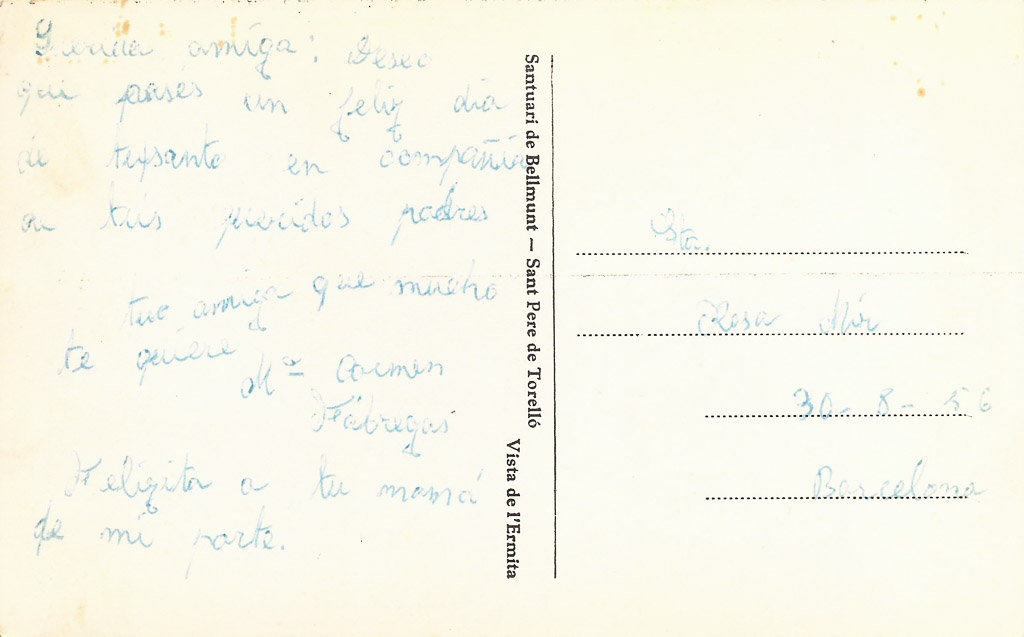 Querida amiga: Deseo
que pases un feliz dia
de tu santo en compañia
de tus queridos padres
tu amiga que mucho
te quiere
Mª Carmen
Fábregas
Felizita a tu mamá
de mi parte.
Santuari de Bellmunt — Sant Pere de Torelló
Vista de l'Ermita
Sta.
Rosa Mir
30-8-56
Barcelona